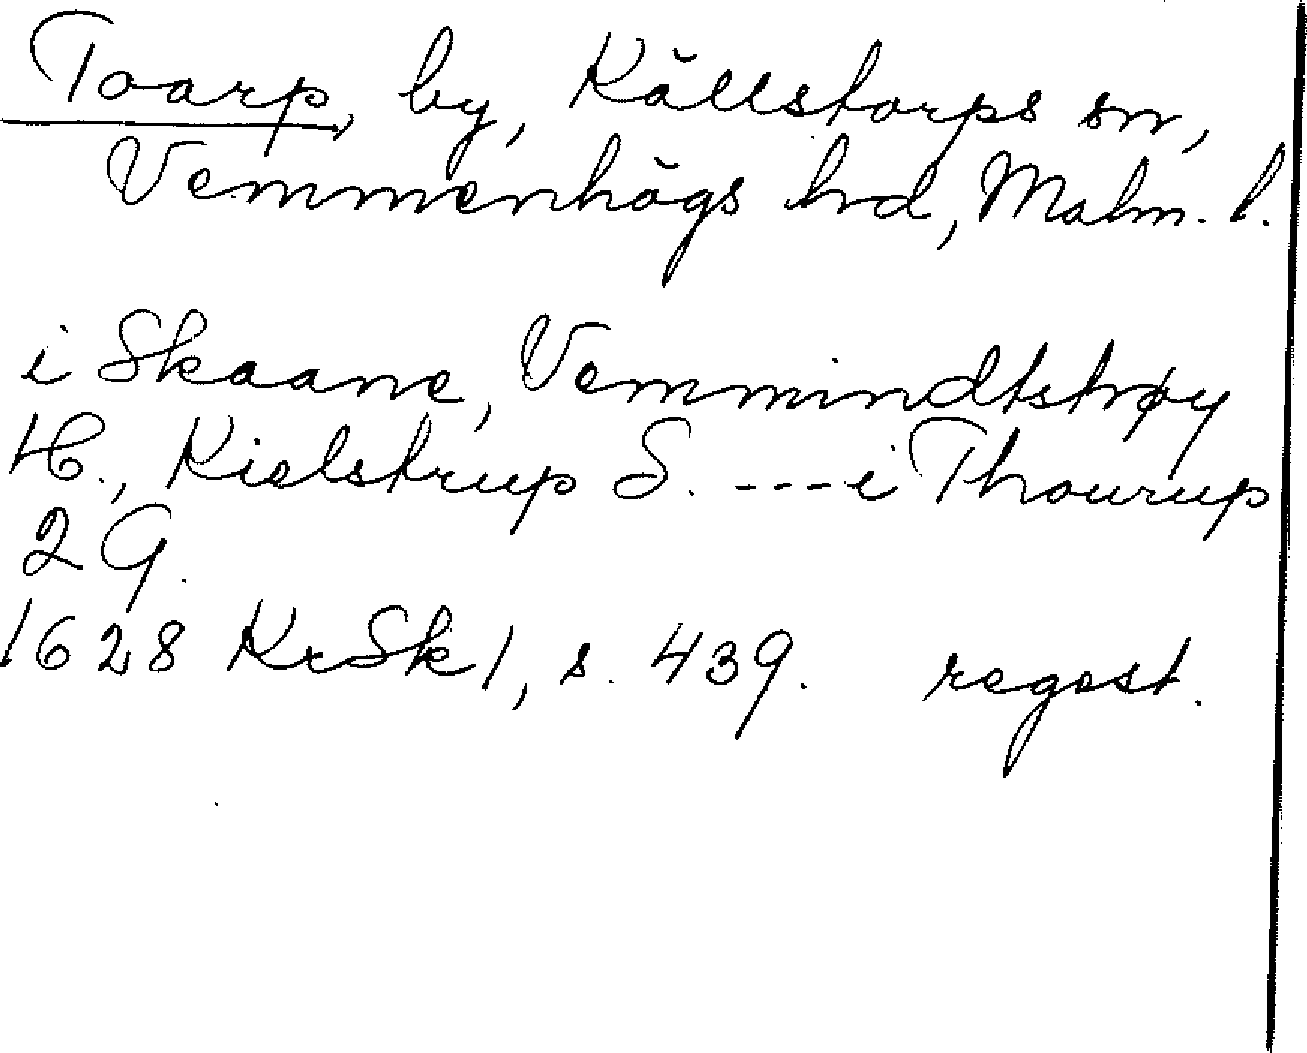 Toarp, by, Källstorps sn,
Vemmenhögs hd, Malm. l.
i Skaane, Vemmindtshøy
H., Kielstrup S. ---i Thourup
2 G.
1628 KrSk 1, s. 439. regest.